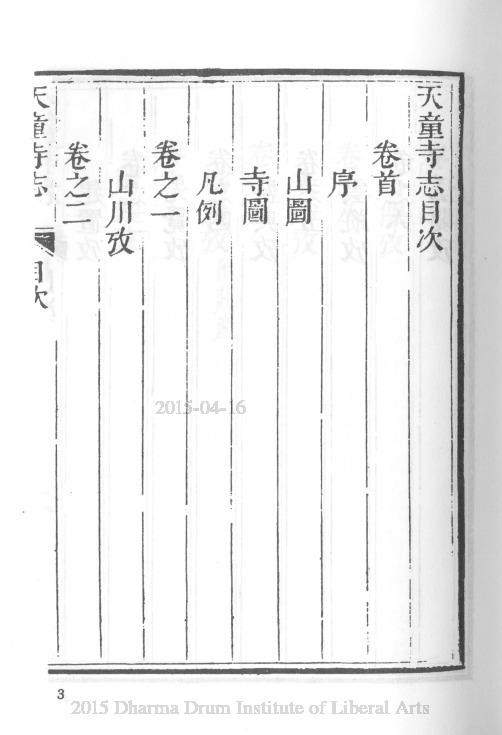 天童寺志目次
卷首
序
山圖
寺圖
凡例
卷之一
山川攷
卷之二
天童寺志 目次
2015-04-16
3
2015 Dharma Drum Institute of Liberal Arts